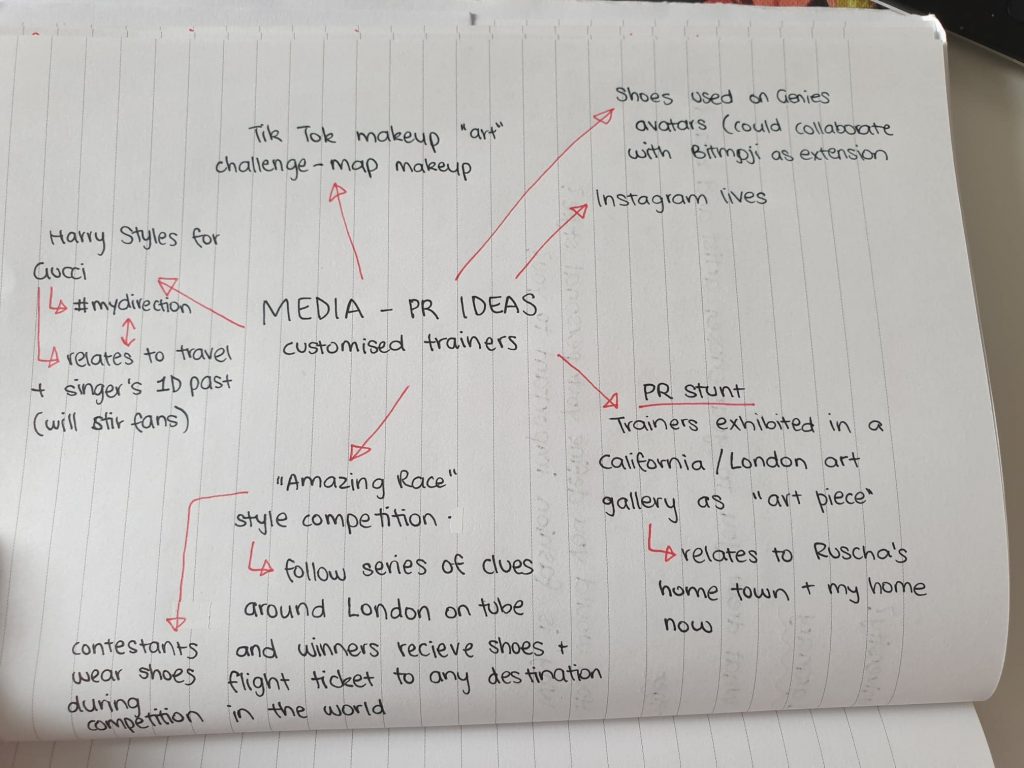 MEDIA – PR IDEAS
customised trainers
Tik Tok makeup "art"
challenge – map makeup
Shoes used on Genies
avatars (could collaborate
with Bitmpji as extension
Instagram lives
Harry Styles for
Gucci
#mydirection
relates to travel
+ singer's 1D past
(will stir fans)
PR STUNT
Trainers exhibited in a
California / London art
gallery as "art piece"
relates to Ruscha's
home town + my home
now
"Amazing Race"
style competition.
follow series of clues
around London on tube
and winners recieve shoes +
flight ticket to any destination
in the world
contestants
wear shoes
during
competition